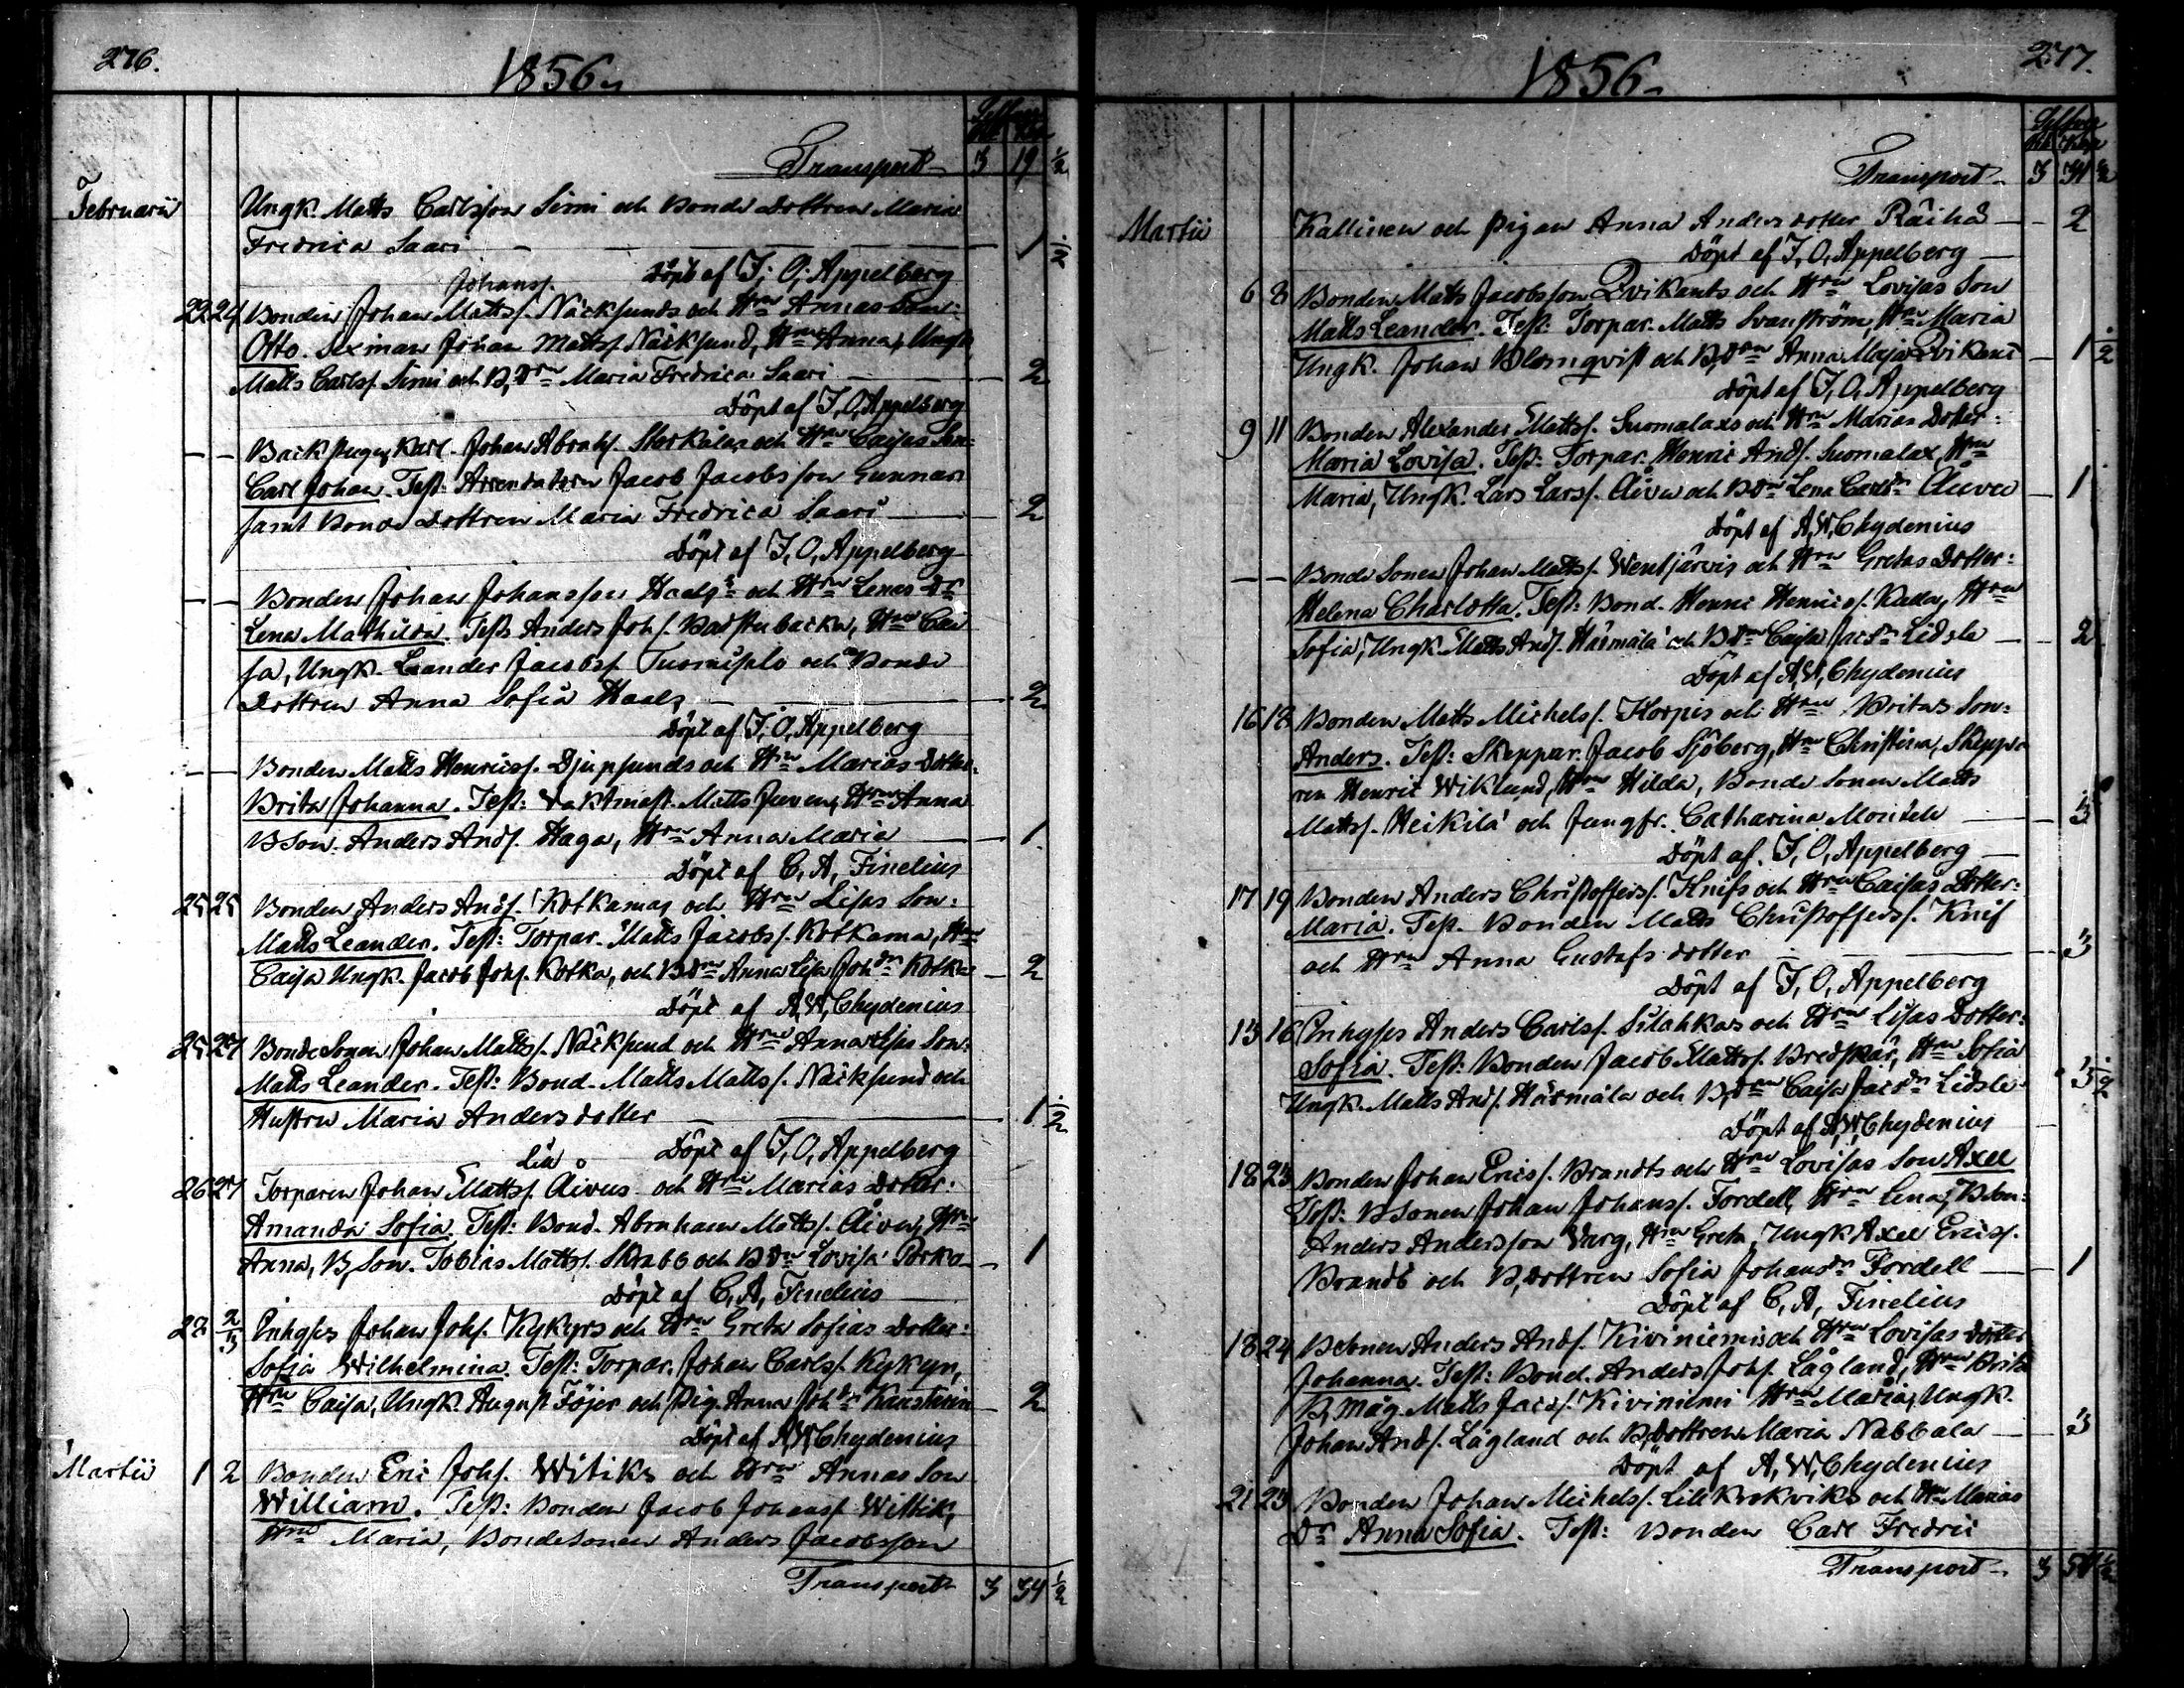 276.
1856.
Transport 3 19 1/2
Februarii
Ungk. Matts Carlsson Simi och Bonde Dottren Maria
Fredrica Saari 1 1/2
Döpt af J, O, Appelberg
Johanss.
22 24 Bonden Johan Matts/. Näcksunds och Hru Annas Son:
Otto. Sexman Johan Matts/. Näcksund, Hru Anna, Ungk.
Matts Carls/. Simi och B, Dru Maria Fredrica Saari 2
Döpt af J, O, Appelberg
— — Johan Abrah/. Storkålas och Hru Caisas Son:
Carl Johan. Test: Arrendatorn Jacob Jacobsson Gunnar
samt Bonde Dottren Maria Fredrica Saari 2
Döpt af J, O, Appelberg
— — Bonden Johan Johansson Haals och Hru Lenas Dr
Lena Mathilda. Test: Anders Joh/. Hru Cai
sa, Ungk. Leander Jacobs/. och Bonde
Dottren Anna Sofia Haals 2
Döpt af J, O, Appelberg
— — Bonden Matts Henrics/. Djupsunds och Hru Marias Dotter:
Brita Johanna. Test: Matts Juven, Hru Anna
BSon. Anders And/. Haga, Hru Anna Maria 1
Döpt af C, A, Finelius
25 25 Bonden Anders And/. Kotkamas och Hru Lisas Son:
Matts Leander. Test: Torpar. Matts Jacobs/. Kotkama, Hru
Caisa Ungk. Jacob Joh/. Kotka, och BDru Anna Lisa Johdr Kotka 2
Döpt af A, W, Chydenius
25 27 Bonde Sonen Johan Matts/. Näcksund och Hru Anna Lisas Son:
Matts Leander. Test: Bond. Matts Matts/. Näcksund och
Hustru Maria Andersdotter 1 1/2
Döpt af J, O, Appelberg
26 27 Torparen Johan Matts/. Åivus och Hru Marias Dotter:
Amanda Sofia. Test: Bond. Abraham Matts/. Åivu, Hru
Anna, B, Son. Tobias Matts/. Skrabb och BDru Lovisa Porko 1
Döpt af C, A, Finelius
27 2/3 Inhyses Johan Joh/. Kykyrs och Hru Greta Sofias Dotter:
Sofia Wilhelmina. Test: Torpar. Johan Carls/. Kykyri,
Hru Caisa, Ungk. August Töjer och Pig. Anna Johdr Kaustinen 2
Döpt af A, W, Chydenius
Martii 1 2 Bonden Eric Joh/. Witiks och Hru Annas Son
William. Test: Bonden Jacob Johans/. Wittik,
Hru Maria, Bondesonen Anders Jacobsson
Transport 3 34 1/2
277.
1856.
Transport 3 34 1/2
Martii
Kallinen och Pigan Anna Andersdotter Räihä 2
Döpt af J, O, Appelberg
6 8 Bonden Matts Jacobsson Qvikants och Hru Lovisas Son
Matts Leander. Test: Torpar. Matts Svanström, Hru Maria
Ungk. Johan Blomqvist och B, Dru Anna Maja Qvikant 1 1/2
Döpt af J, O, Appelberg
9 11 Bonden Alexander Matts/. Suomalaxs och Hru Marias Dotter:
Maria Lovisa. Test: Torpar. Henric And/. Suomalax, Hru
Maria, Ungk. Lars Lars/. Åivu och BDru Lena Carlsdr Åivu 1
Döpt af A, W, Chydenius
— — Bonde Sonen Johan Matts/. Wentjärvis och Hru Gretas Dotter:
Helena Charlotta. Test: Bond. Henric Henrics/. Kada, Hru
Sofia, Ungk. Matts And/. Härmälä och BDru Caisa Jacdr Lidsle 2
Döpt af A, W, Chydenius
16 18 Bonden Matts Michels/. Korpis och Hru Britas Son:
Anders. Test: Skeppar. Jacob Sjöberg, Hru Christina, Skeppa
ren Henric Wiklund, Hru Hilda, Bonde Sonen Matts
Matts/. Heikilä och Jungfr. Catharina Montell 3
Döpt af J, O, Appelberg
17 19 Bonden Anders Christoffers/. Knifs och Hru Caisas Dotter:
Maria. Test. Bonden Matts Christoffers/. Knif
och Hru Anna Gustafsdotter 3
Döpt af J, O, Appelberg
13 16 Inhyses Anders Carls/. Silahkas och Hru Lisas Dotter:
Sofia. Test: Bonden Jacob Matts/. Bredskär, Hru Sofia
Ungk. Matts And/. Härmälä och B, Dru Caisa Jacdr Lidsle 3 1/2
Döpt af A, W, Chydenius
18 23 Bonden Johan Erics/. Brandts och Hru Lovisas Son Axel
Test: BSonen Johan Johans/. Fordell, Hru Lena, BSon:
Anders Andersson Varg, Hru Greta, Ungk Axel Erics/.
Brandt och B, dottren Sofia Johansdr Fordell 1
Döpt af C, A, Finelius
18 24 BSonen Anders And/. Kiviniemis och Hru Lovisas Dotter
Johanna. Test: Bond. Anders Joh/. Lågland, Hru Brita
B, måg Matts Jacs/. Kiviniemi Hru Maria, Ungk.
Johan And/. Lågland och B, dottren Maria Nabbala 3
Döpt af A, W, Chydenius
21 23 Bonden Johan Michels/. Lillkvikviks och Hru Marias
Dr Anna Sofia. Test: Bonden Carl Fredric
Transport 3 57 1/2